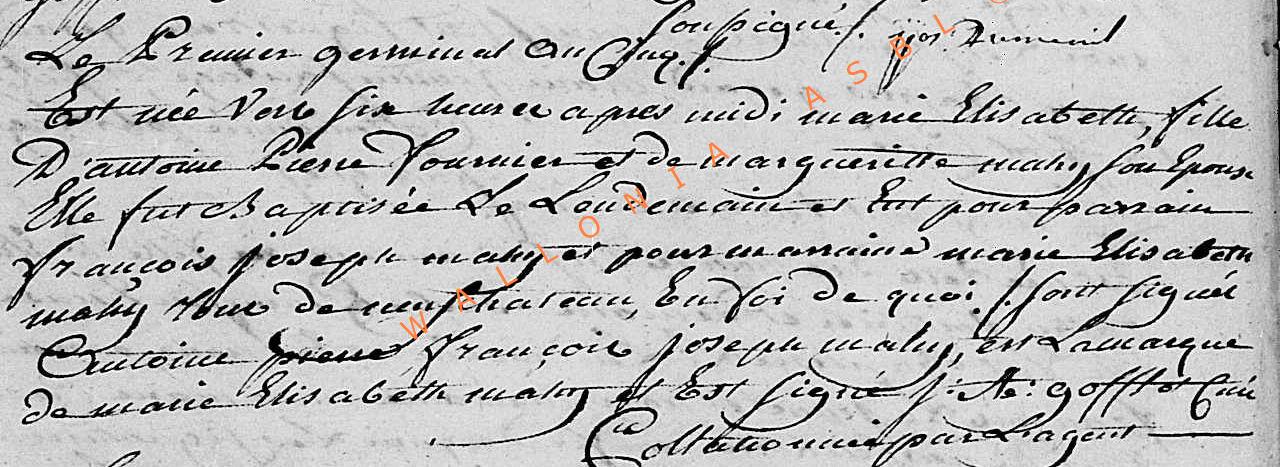 Soussigné /. jjos: Dumenil
Le Premier germinal an Cinq /.
Est née vers six heures apres midi marie Elisabeth, fille
D'antoine Pierre fournier et de margueritte mahy son Epouse
Elle fut Baptisée Le Lendemain et Eut pour parrain
françois joseph mahy et pour marraine marie Elisabeth
mahy tous de neufchateau, En foi de quoi /. sont signés
Antoine pierre françois joseph mahy, et La marque
de marie Elisabeth mahy et Est signé j: A: gofflot Curé
Collationnée par L'agent
WALLONIA ASBL